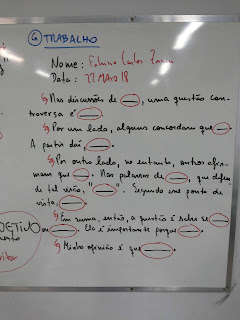 G TRABALHO
Nome: Fabiano Carlos
Data: 22 MAIO 18
Nas discussões de ___, uma questão con-
troversa é ___.
Por um lado, alguns concordam que ___.
A partir daí, ___.
Por outro lado, no entanto, outros afir-
mam que ___. Nas palavras de ___, que defen-
de tal visão, "___". Segundo esse ponto de
vista, ___.
Em suma, então, a questão é sobre se ___
ou ___. Ela é importante porque ___.
Minha opinião é que ___.